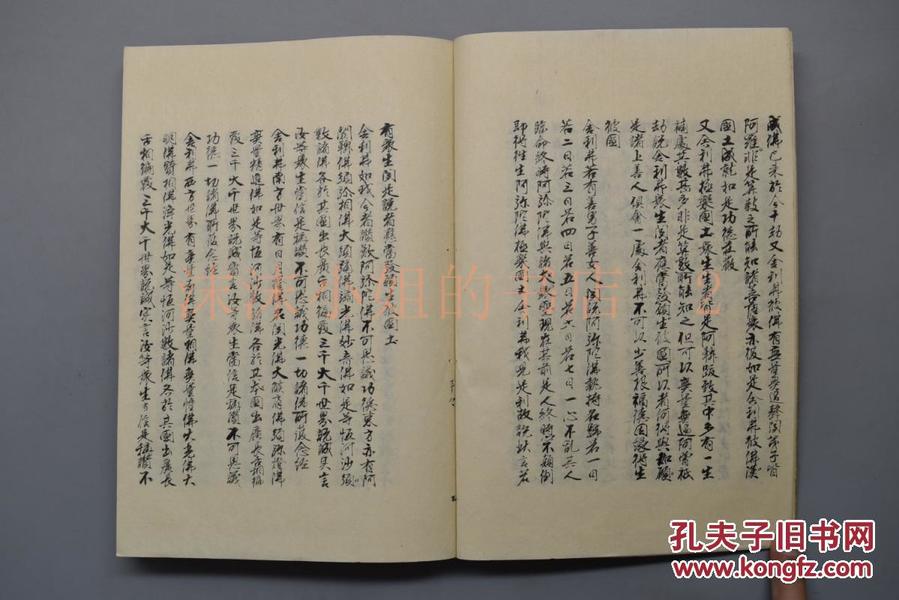 成佛已來於今十劫又舍利弗彼佛有無量無邊聲聞弟子皆
阿羅非是算數之所能知諸菩薩衆亦復如是舍利弗彼佛漢
國土成就如是功德莊嚴
又舍利弗極樂國土衆生生者皆是阿鞞跋致其中多有一生
補處其數甚多非是算數所能知之但可以無量無邊阿僧祇
劫說舍利弗衆生聞者應當發願生彼國所以者何得與如
是諸上善人俱會一處舍利弗不可以少善根福德因緣得生
彼國
舍利弗若有善男子善女人聞說阿彌陀佛執持名號若一日
若二日若三日若四日若五日若六日若七日一心不亂其人
臨命終時阿彌陀佛與諸聖衆現在其前是人終時心不顛倒
即得往生阿彌陀佛極樂國土舍利弗我見是利故說此言若
有衆生聞是說者應當發願生彼國土
舍利弗如我今者讚歎阿彌陀佛不可思議功德東方亦有阿
閦鞞佛須彌相佛大須彌佛須彌光佛妙音佛如是等恒河沙
數諸佛各於其國出廣長舌相徧覆三千大千世界說誠實言
汝等衆生當信是稱讚不可思議功德一切諸佛所護念經
舍利弗南方世界有日月燈佛名聞光佛大燄肩佛須彌燈佛
無量精進佛如是等恒河沙數諸佛各於其國出廣長舌相徧
覆三千大千世界說誠實言汝等衆生當信是稱讚不可思議
功德一切諸佛所護念經
舍利弗西方世界有無量壽佛無量相佛無量幢佛大光佛大
明佛寶相佛淨光佛如是等恒河沙數諸佛各於其國出廣長
舌相徧覆三千大千世界說誠實言汝等衆生當信是稱讚不
小姐的书店
孔夫子旧书网
www.kongfz.com